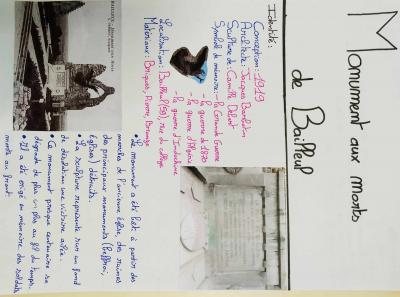 Monument aux morts
de Bailleul
Identité :
Conception : 1919
Architecte : Jacques Barbotin
Sculpture de : Camille Debert
Symbole de mémoire : - la Grande Guerre
- la guerre de 1870
- la guerre d'Algérie
- la guerre d'Indochine
Localisation : Bailleul (59), rue du collège
Matériaux : Briques, Pierre, Bronze
• Le monument a été bâti à partir des
marches de l'ancienne église, des ruines
des principaux monuments (beffroi,
églises) détruits.
• La sculpture représente sur un fond
de dévastation une victoire ailée.
• Ce monument presque centenaire se
dégrade de plus en plus au fil du temps.
• Il a été érigé en mémoire des soldats
morts au front.